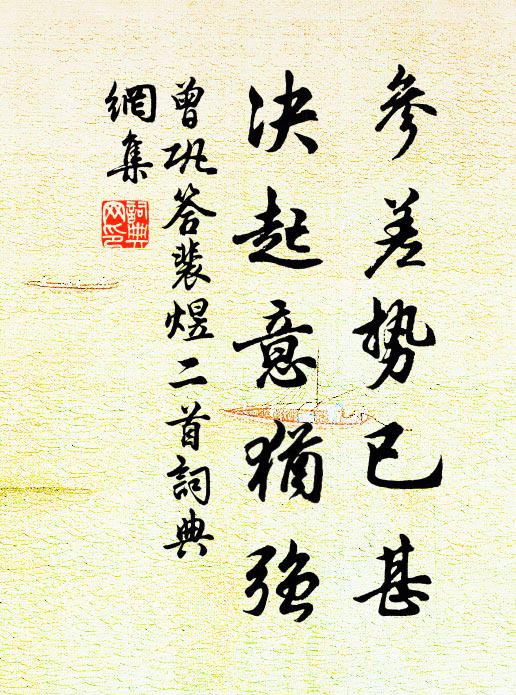 參差势已甚
决起意猶强
曾巩答裴煜二首詞典
網集
詞典网印